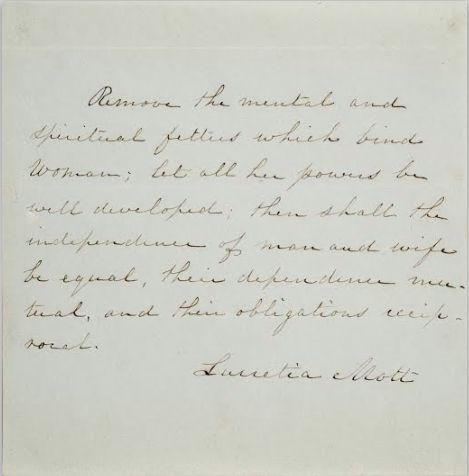 Remove the mental and
spiritual fetters which bind
Woman; let all her powers be
well developed; then shall the
independence of man and wife
be equal, their dependence mu-
tual, and their obligations recip-
rocal.
Lucretia Mott